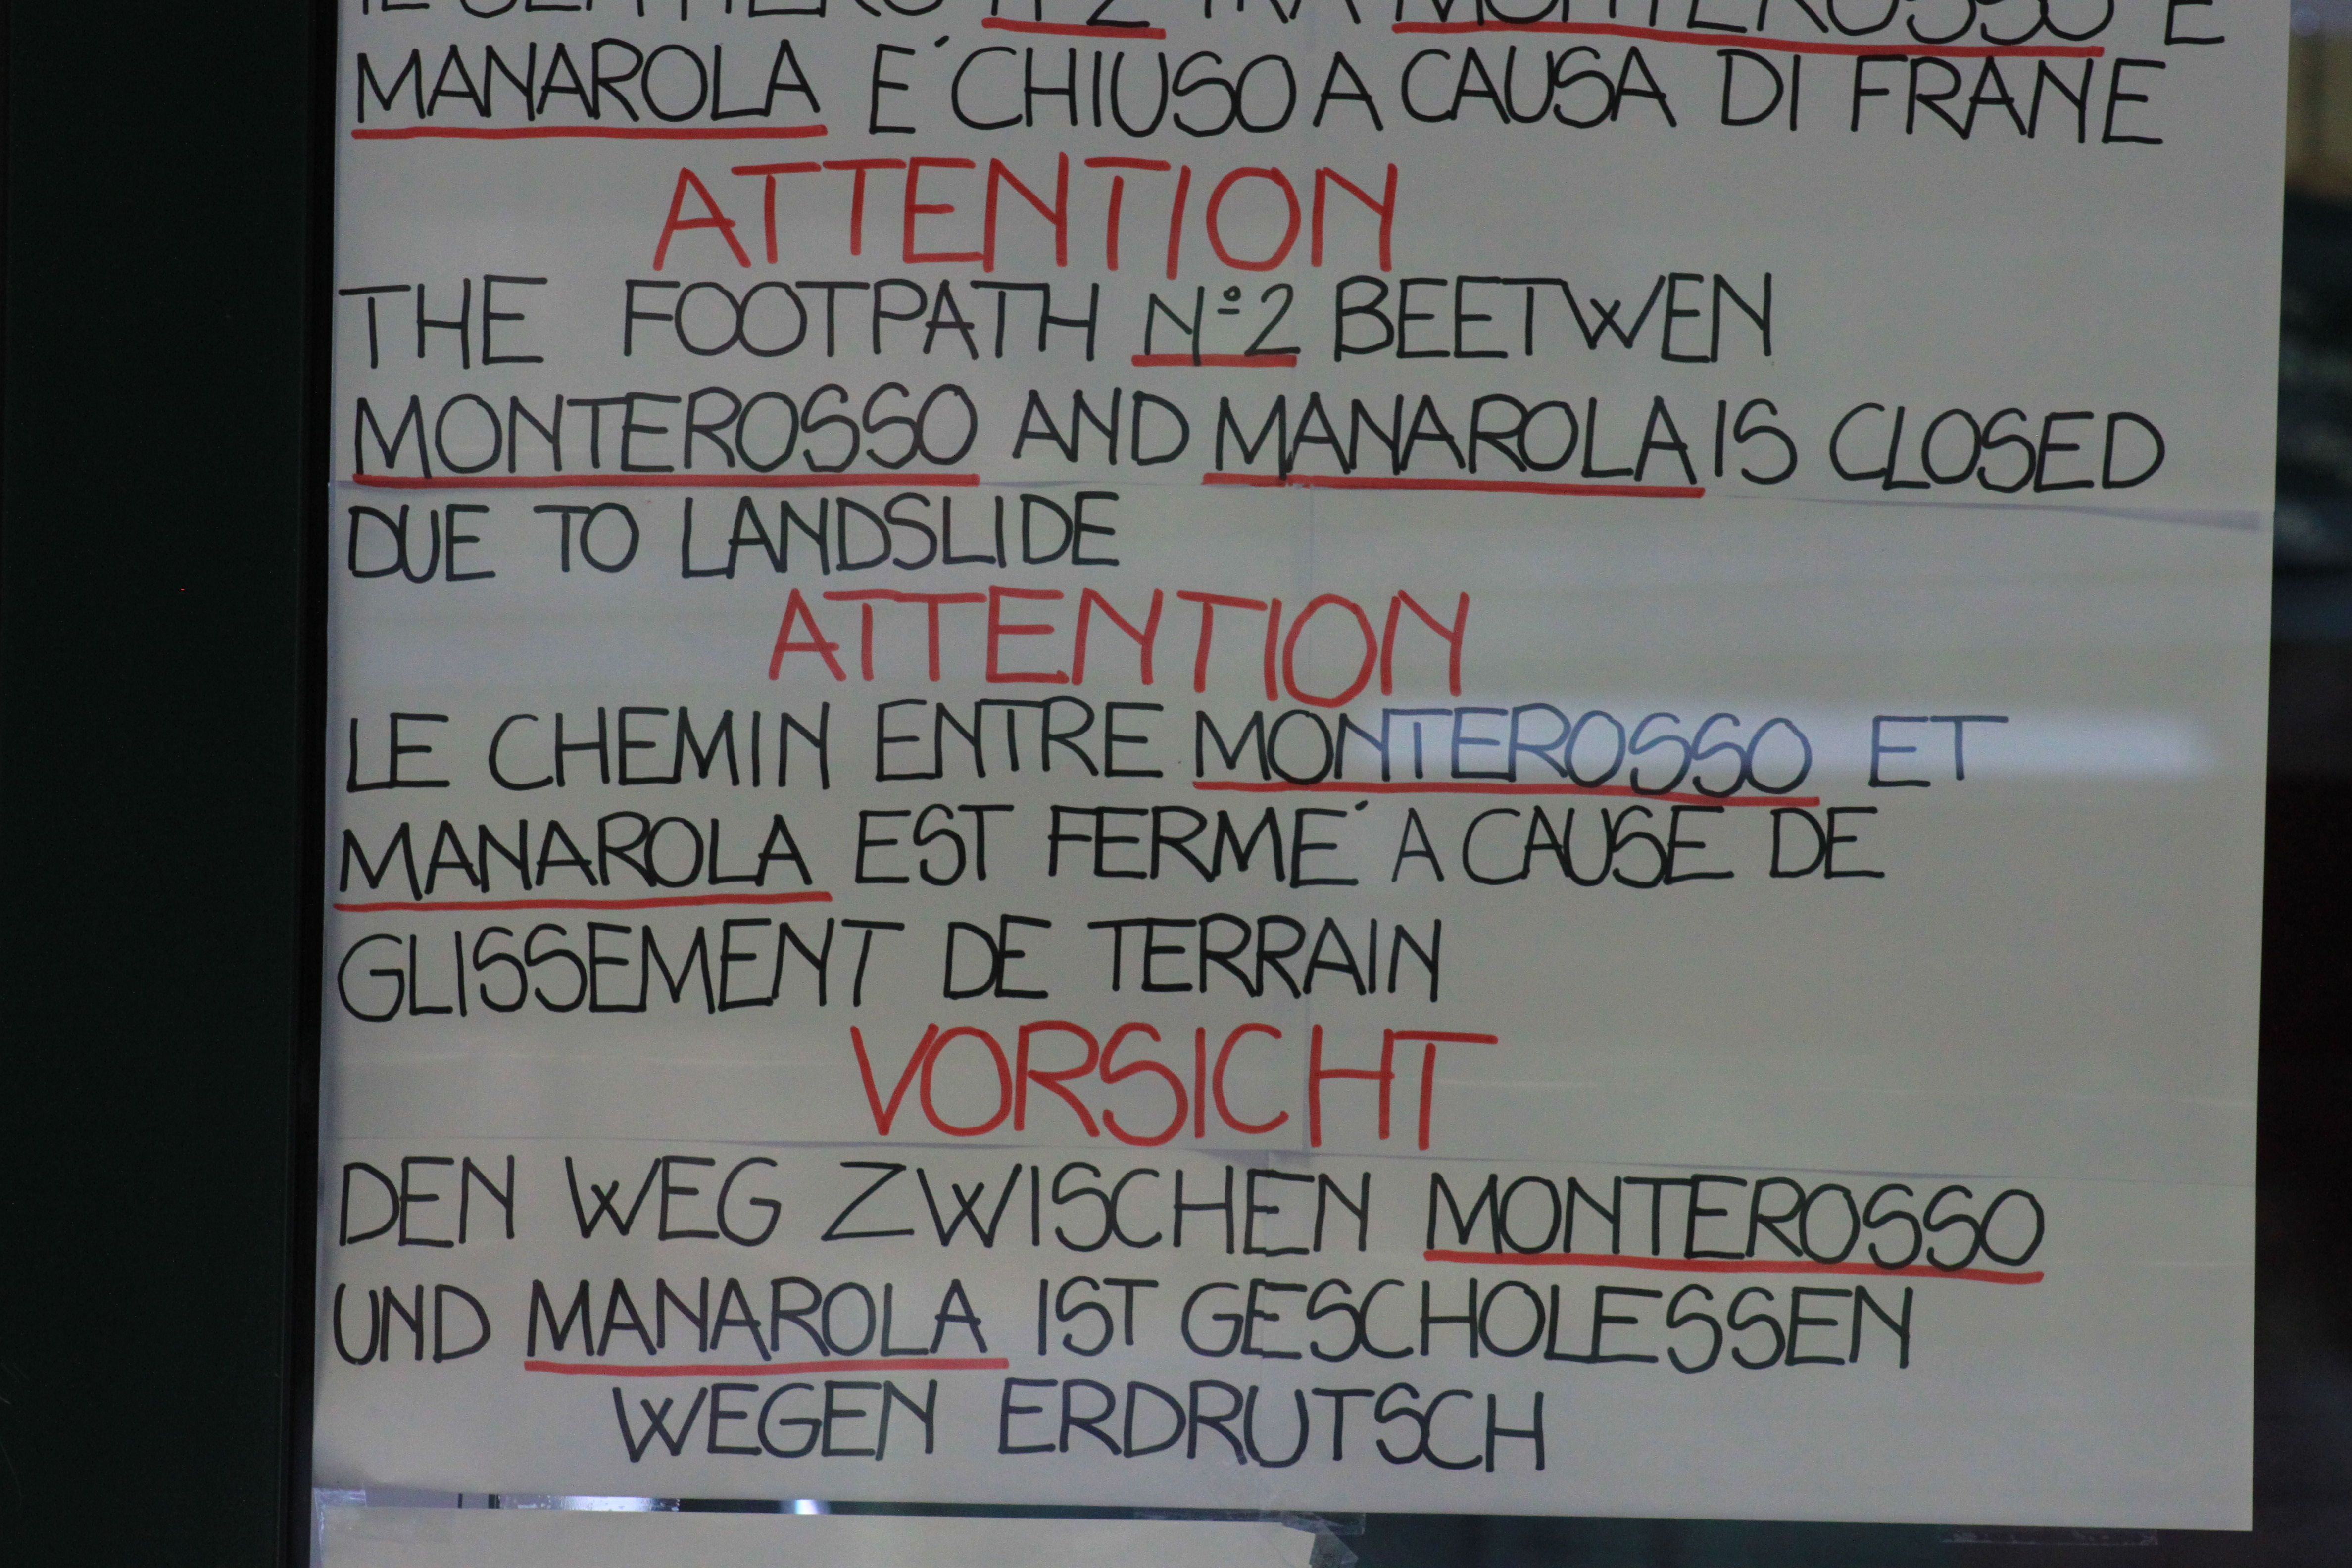 IL SENTIERO N°2 TRA MONTEROSSO E
MANAROLA E´ CHIUSO A CAUSA DI FRANE
ATTENTION
THE FOOTPATH N°2 BEETWEN
MONTEROSSO AND MANAROLA IS CLOSED
DUE TO LANDSLIDE
ATTENTION
LE CHEMIN ENTRE MONTEROSSO ET
MANAROLA EST FERME´ A CAUSE DE
GLISSEMENT DE TERRAIN
VORSICHT
DEN WEG ZWISCHEN MONTEROSSO
UND MANAROLA IST GESCHOLESSEN
WEGEN ERDRUTSCH